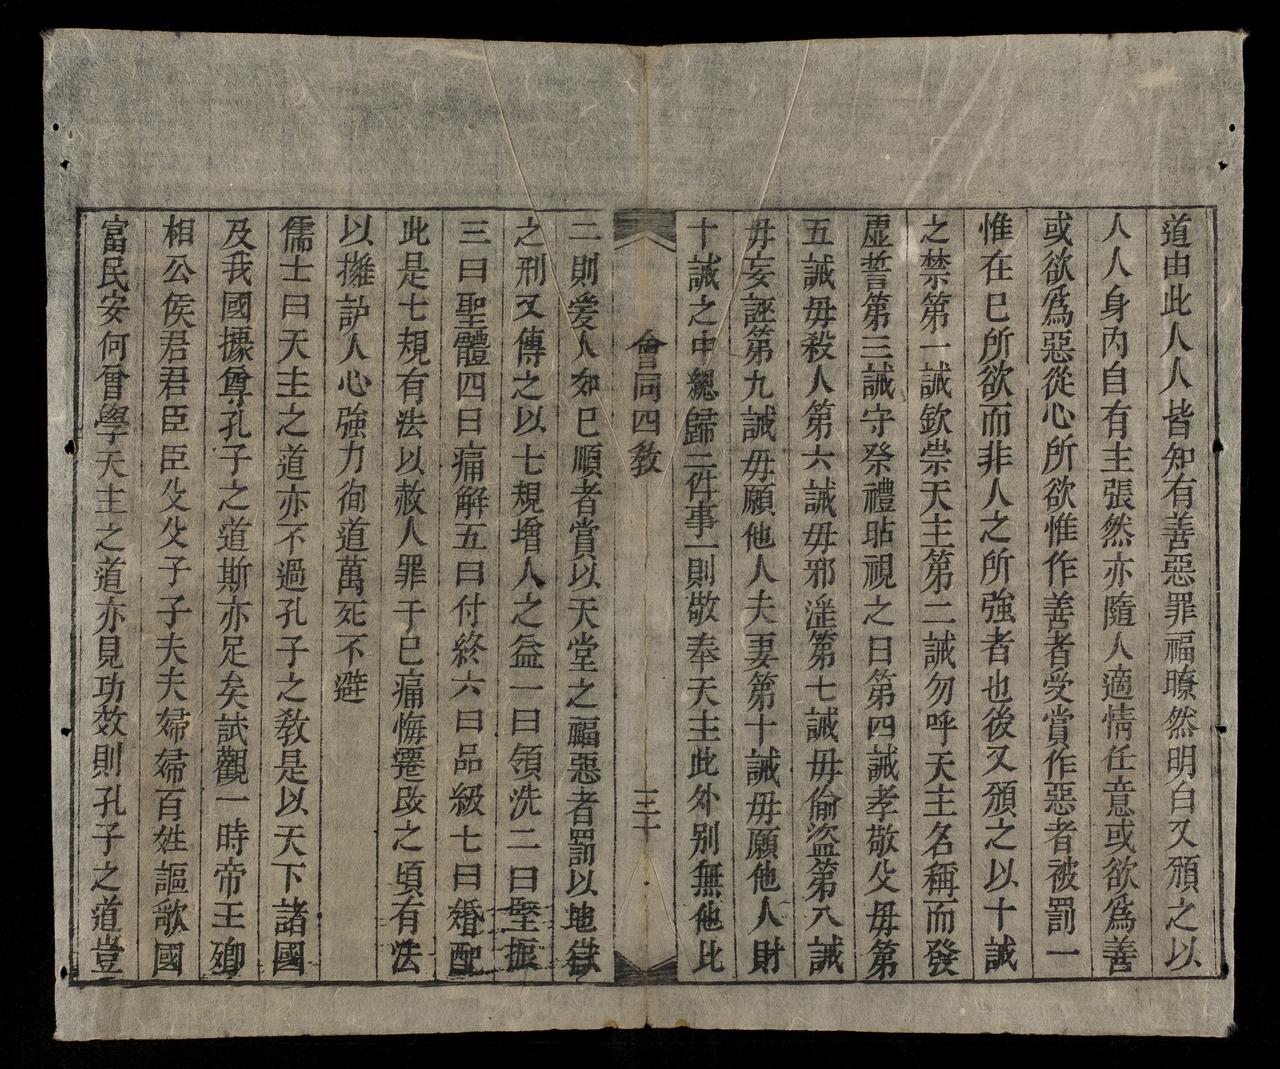 道由此人人皆知有善惡罪福瞭然明白又頒之以
人人身內自有主張然亦隨人適情任意或欲爲善
或欲爲惡從心所欲惟作善者受賞作惡者被罰一
惟在已所欲而非人之所強者也後又頒之以十誡
之禁第一誡欽崇天主第二誡勿呼天主名稱而發
虛誓第三誡守祭禮瞻視之日第四誡孝敬父毋第
五誡毋殺人第六誡毋邪淫第七誡毋偷盜第八誡
毋妄誣第九誡毋願他人夫妻第十誡毋願他人財
十誡之中總歸二件事一則敬奉天主此外別無他比
會同四教 三十
二則爱人如已順者賞以天堂之福惡者罰以地獄
之刑又傳之以七規增人之益一曰領洗二曰堅振
三曰聖體四曰痛解五曰付終六曰品級七曰婚配
此是七規有法以赦人罪于已痛悔遷改之頃有法
以擁護人心強力徇道萬死不避
儒士曰天主之道亦不過孔子之教是以天下諸國
及我國據尊孔子之道斯亦足矣試觀一時帝王卿
相公侯君君臣臣父父子子夫夫婦婦百姓謳歌國
富民安何曾學天主之道亦見功效則孔子之道豈